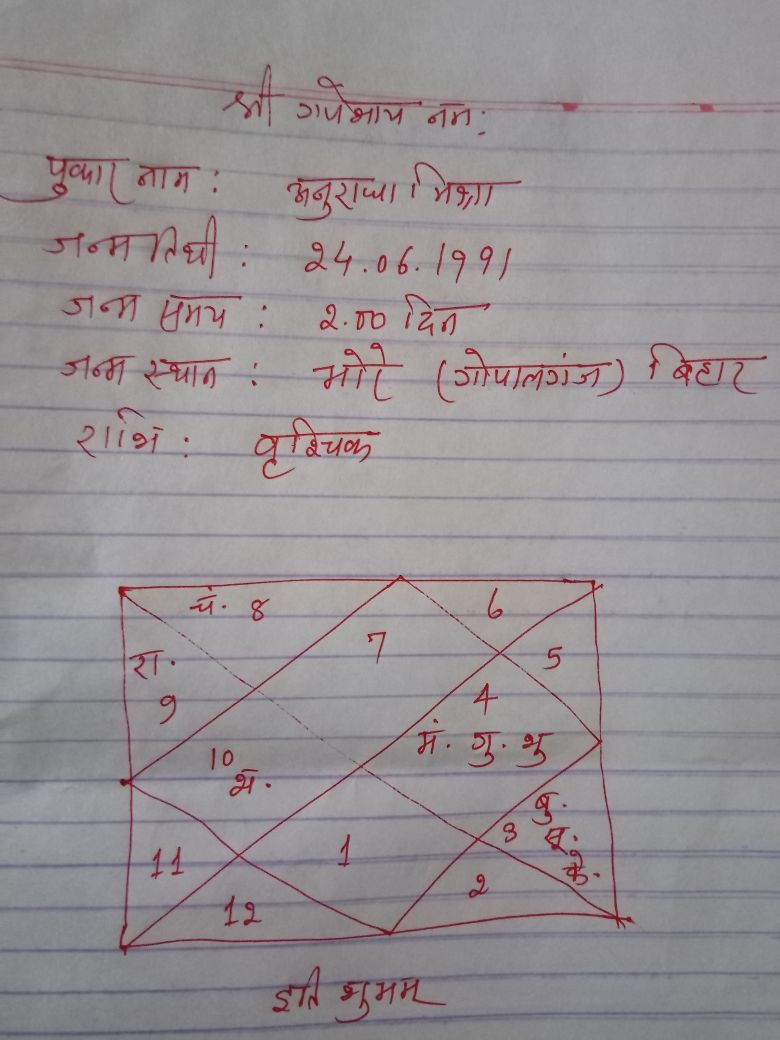 श्री गणेशाय नमः
पुकार नाम : अनुराधा मिश्रा
जन्म तिथी : 24.06.1991
जन्म समय : 2.00 दिन
जन्म स्थान : भोरे (गोपालगंज) बिहार
राशि : वृश्चिक
चं. 8
6
7
5
रा.
9
4
मं. गु. शु
10
श.
बु.
3 सू.
के.
11
1
2
12
इति शुभम्